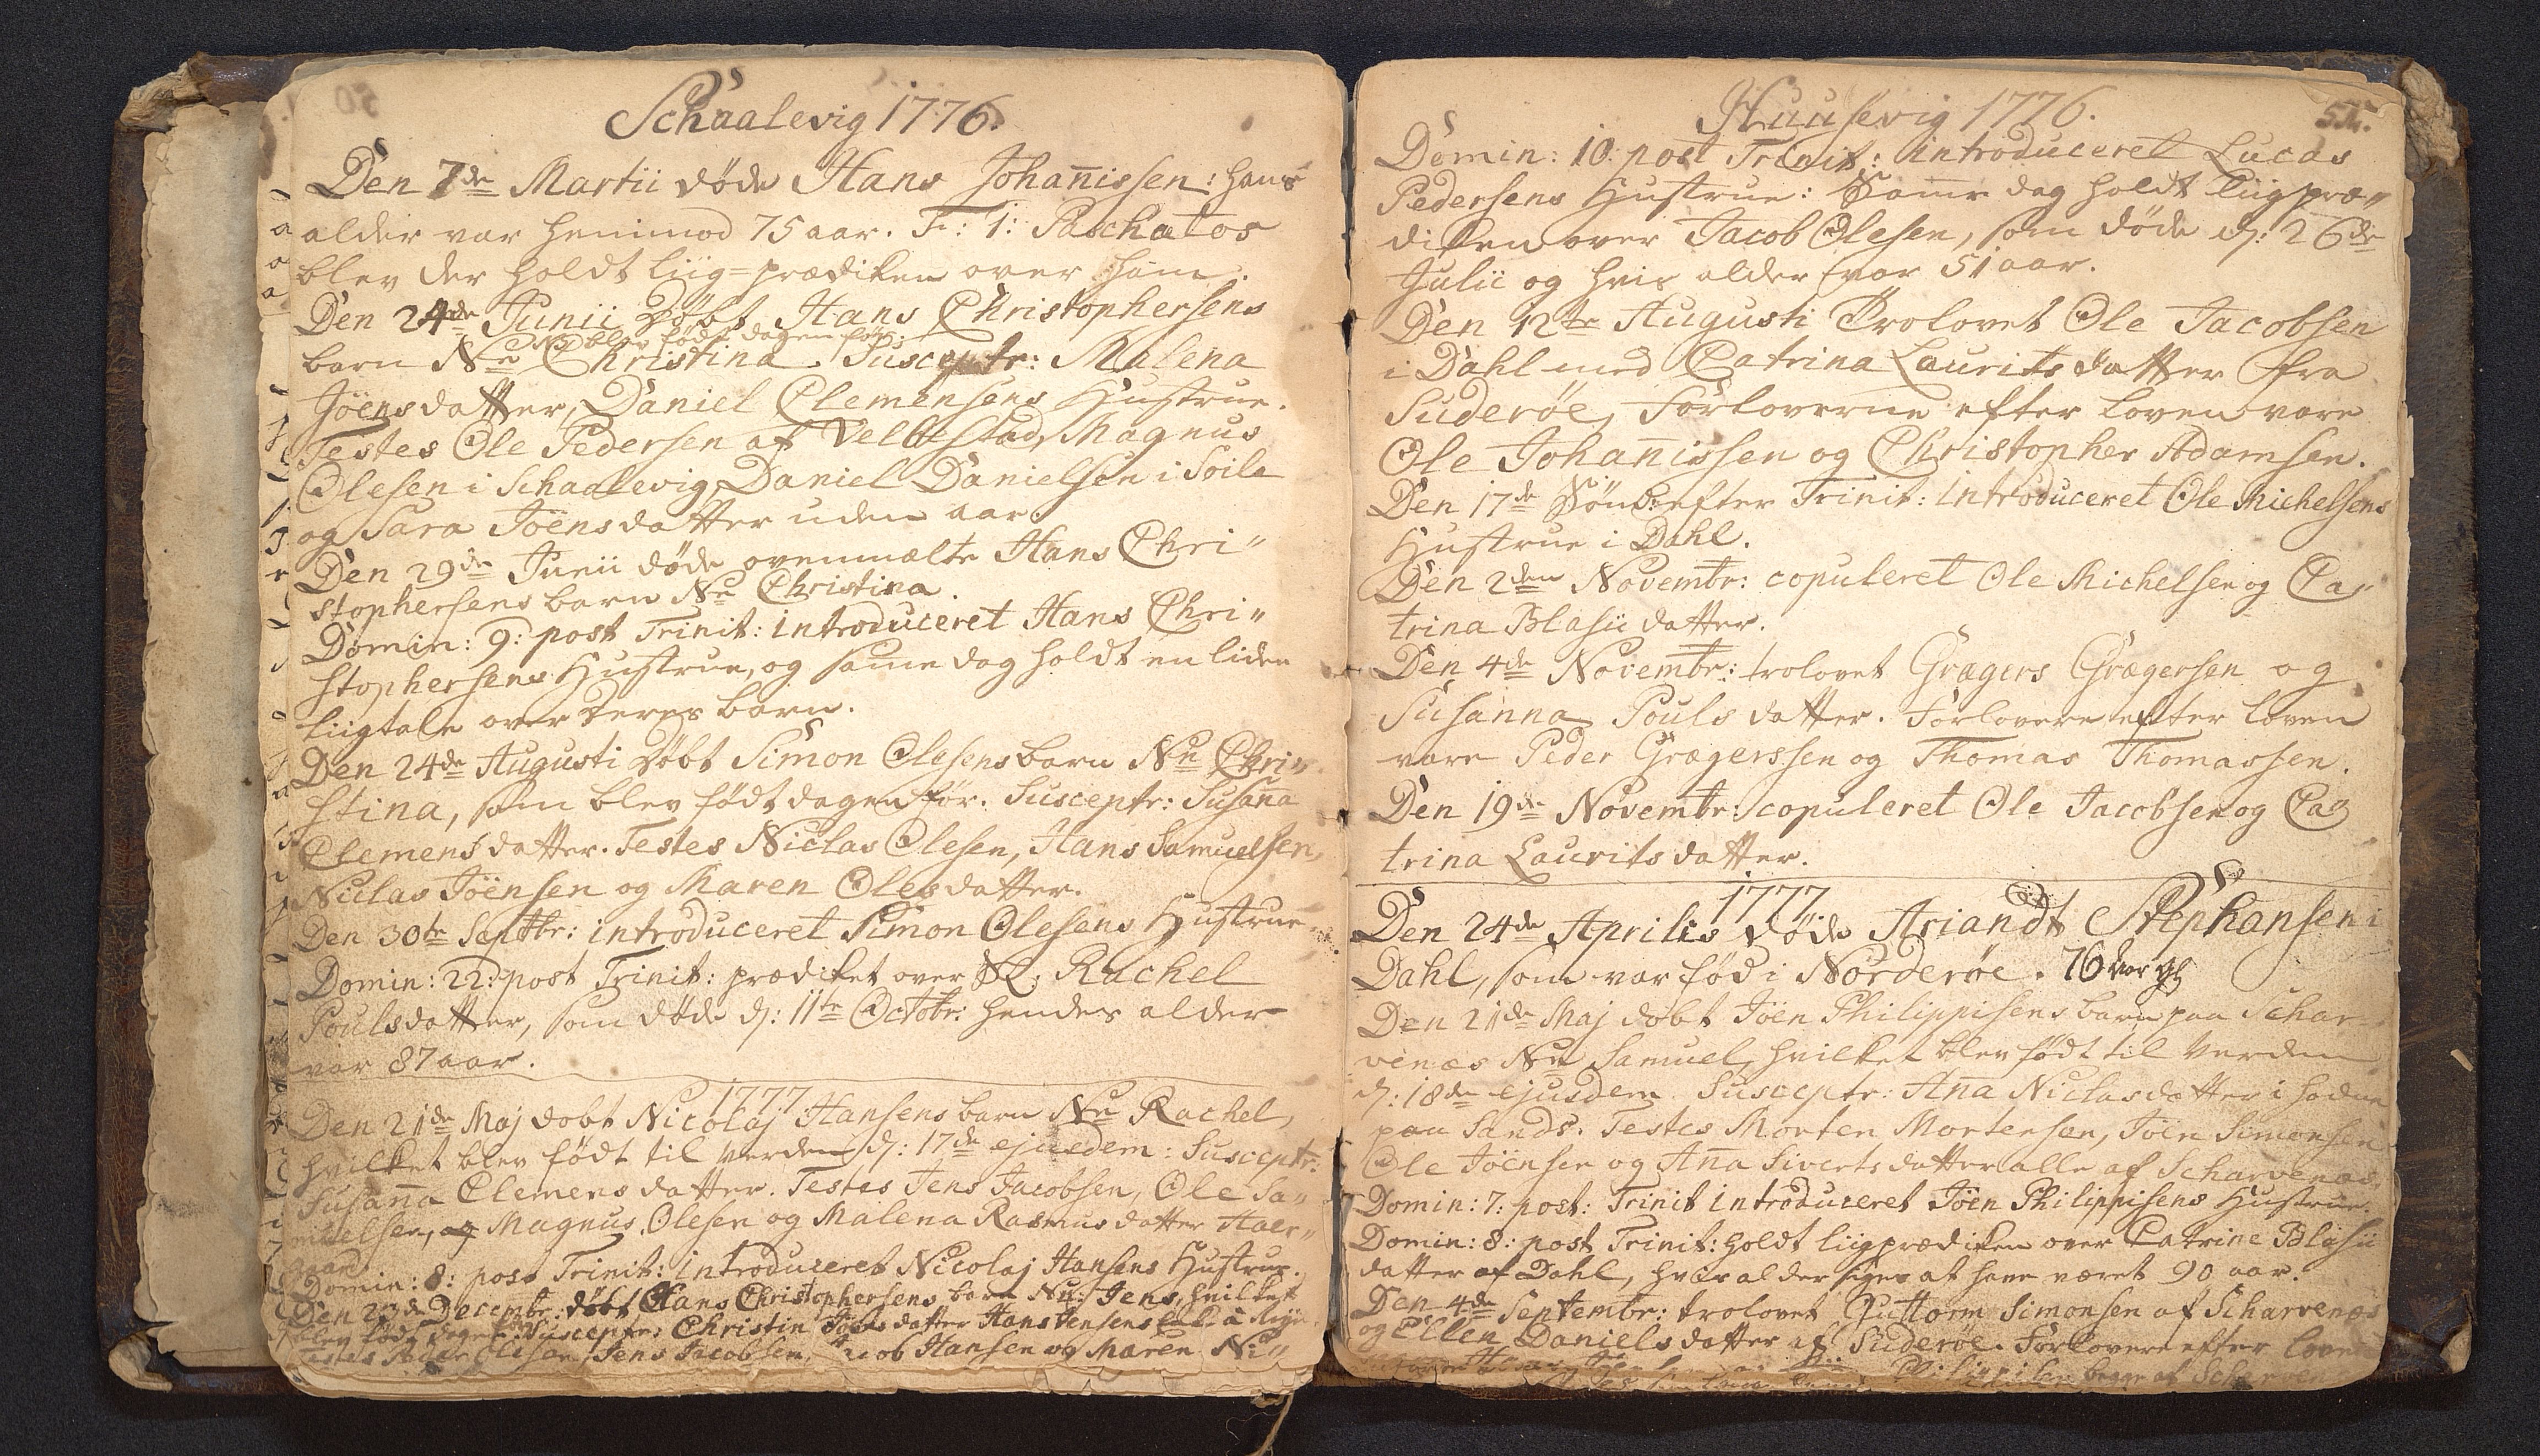 Schaalevig 1776.
Den 7de Martii døde Hans Johañissen: hans
alder var henimod 75 aar. Fr: 1: Paschatos
blev der holdt liig=prædiken over ham.
Den 24de Junii døbt Hans Christophersens
NB blev født dagen før
barn Nn Christina. Susceptr: Malena
Jöensdatter, Daniel Clemensens Hustrue.
Testes Ole Pedersen af Velbestad, Magnus
Olesen i Schaalevig, Daniel Danielsen i Soile
og Sara Jöensdatter uden aar.
Den 29de Junii døde ovenmælte Hans Chri"
stophersens barn Nn Christina.
Domin: 9: post Trinit: introduceret Hans Chri"
stophersens Hustrue, og same dag holdt en liden
liigtale over deres barn.
Den 24de Augusti døbt Simon Olesens barn Nn Chri"
stina, som blev født dagen før. Susceptr: Susaña
Clemensdatter. Testes Niclas Olesen, Hans Samuelsen,
Niclas Jöensen og Maren Olesdatter.
Den 30te Septbr: introduceret Simon Olesens Hustrue.
Domin: 22: post Trinit: prædiket over Sl: Rachel
Poulsdatter, som døde d: 11te Octobr: hendes alder
var 87 aar.
1777
Den 21de Maj døbt Nicolaj Hansens barn Nn Rachel,
hvilket blev født til verden d: 17de ejusdem: Susceptr:
Susaña Clemensdatter. Testes Jens Jacobsen, Ole Sa"
muelsen, og Magnus Olesen og Malena Rasmusdatter
Domin: 8: post Trinit: introduceret Nicolaj Hansens Hustrue.
Den 23de Decembr: døbt Hans Christophersens barn Nn: Jens, hvilket
blev født dagen før Susceptr: Christin datter Hans Jensens
Testes Olesen, Jens Jacobsen, Jacob Hansen og Maren Ni"
Huusevig 1776.
51.
Domin: 10: post Trinit: introduceret Lucas
Pedersens Hustrue: Same dag holdt Liigpræ"
diken over Jacob Olesen, som døde d: 26de
Julii og hvis alder var 51 aar.
Den 12te Augusti Trolovet Ole Jacobsen
i Dahl med Catrina Lauritsdatter fra
Suderöe, Forloverne efter loven vare
Ole Johañissen og Christopher Adamsen.
Den 17de Sönd: efter Trinit: introduceret Ole Michelsens
Hustrue i Dahl.
Den 2den Novembr: copuleret Ole Michelsen og Ca"
trina Blasii datter.
Den 4de Novembr: trolovet Grægers Grægersen og
Susanna Pouls datter. Forlovere efter loven
vare Peder Grægerssen og Thomas Thomassen.
Den 19de Novembr: copuleret Ole Jacobsen og Ca"
trina Laurits datter.
1777
Den 24de Aprilis døde Ariandt Stephansen i
Dahl, som var föd i Norderöe. 76 aar gl
Den 21de Maj døbt Jöen Philippisens barn paa Schar-
venæs Nn Samuel, hvilket blev født til Verden
d: 18de ejusdem. Susceptr: Aña Niclasdatter i
paa Sands. Testes Morten Mortensen, Jöen Simonsen
Ole Jöensen og Aña Sivertsdatter alle af Scharvenæs.
Domin: 7: post: Trinit introduceret Jöen Philippisens Hustrue.
Domin: 8: post Trinit: holdt liigprædiken over Catrine Blasii
datter af Dahl, hvis alder siges at have været 90 aar.
Den 4de Septembr: trolovet Guttorm Simonsen af Scharvenæs
og Ellen Danielsdatter af Suderöe. Forlovere efter loven
Philippisen begge af Scharvenæs